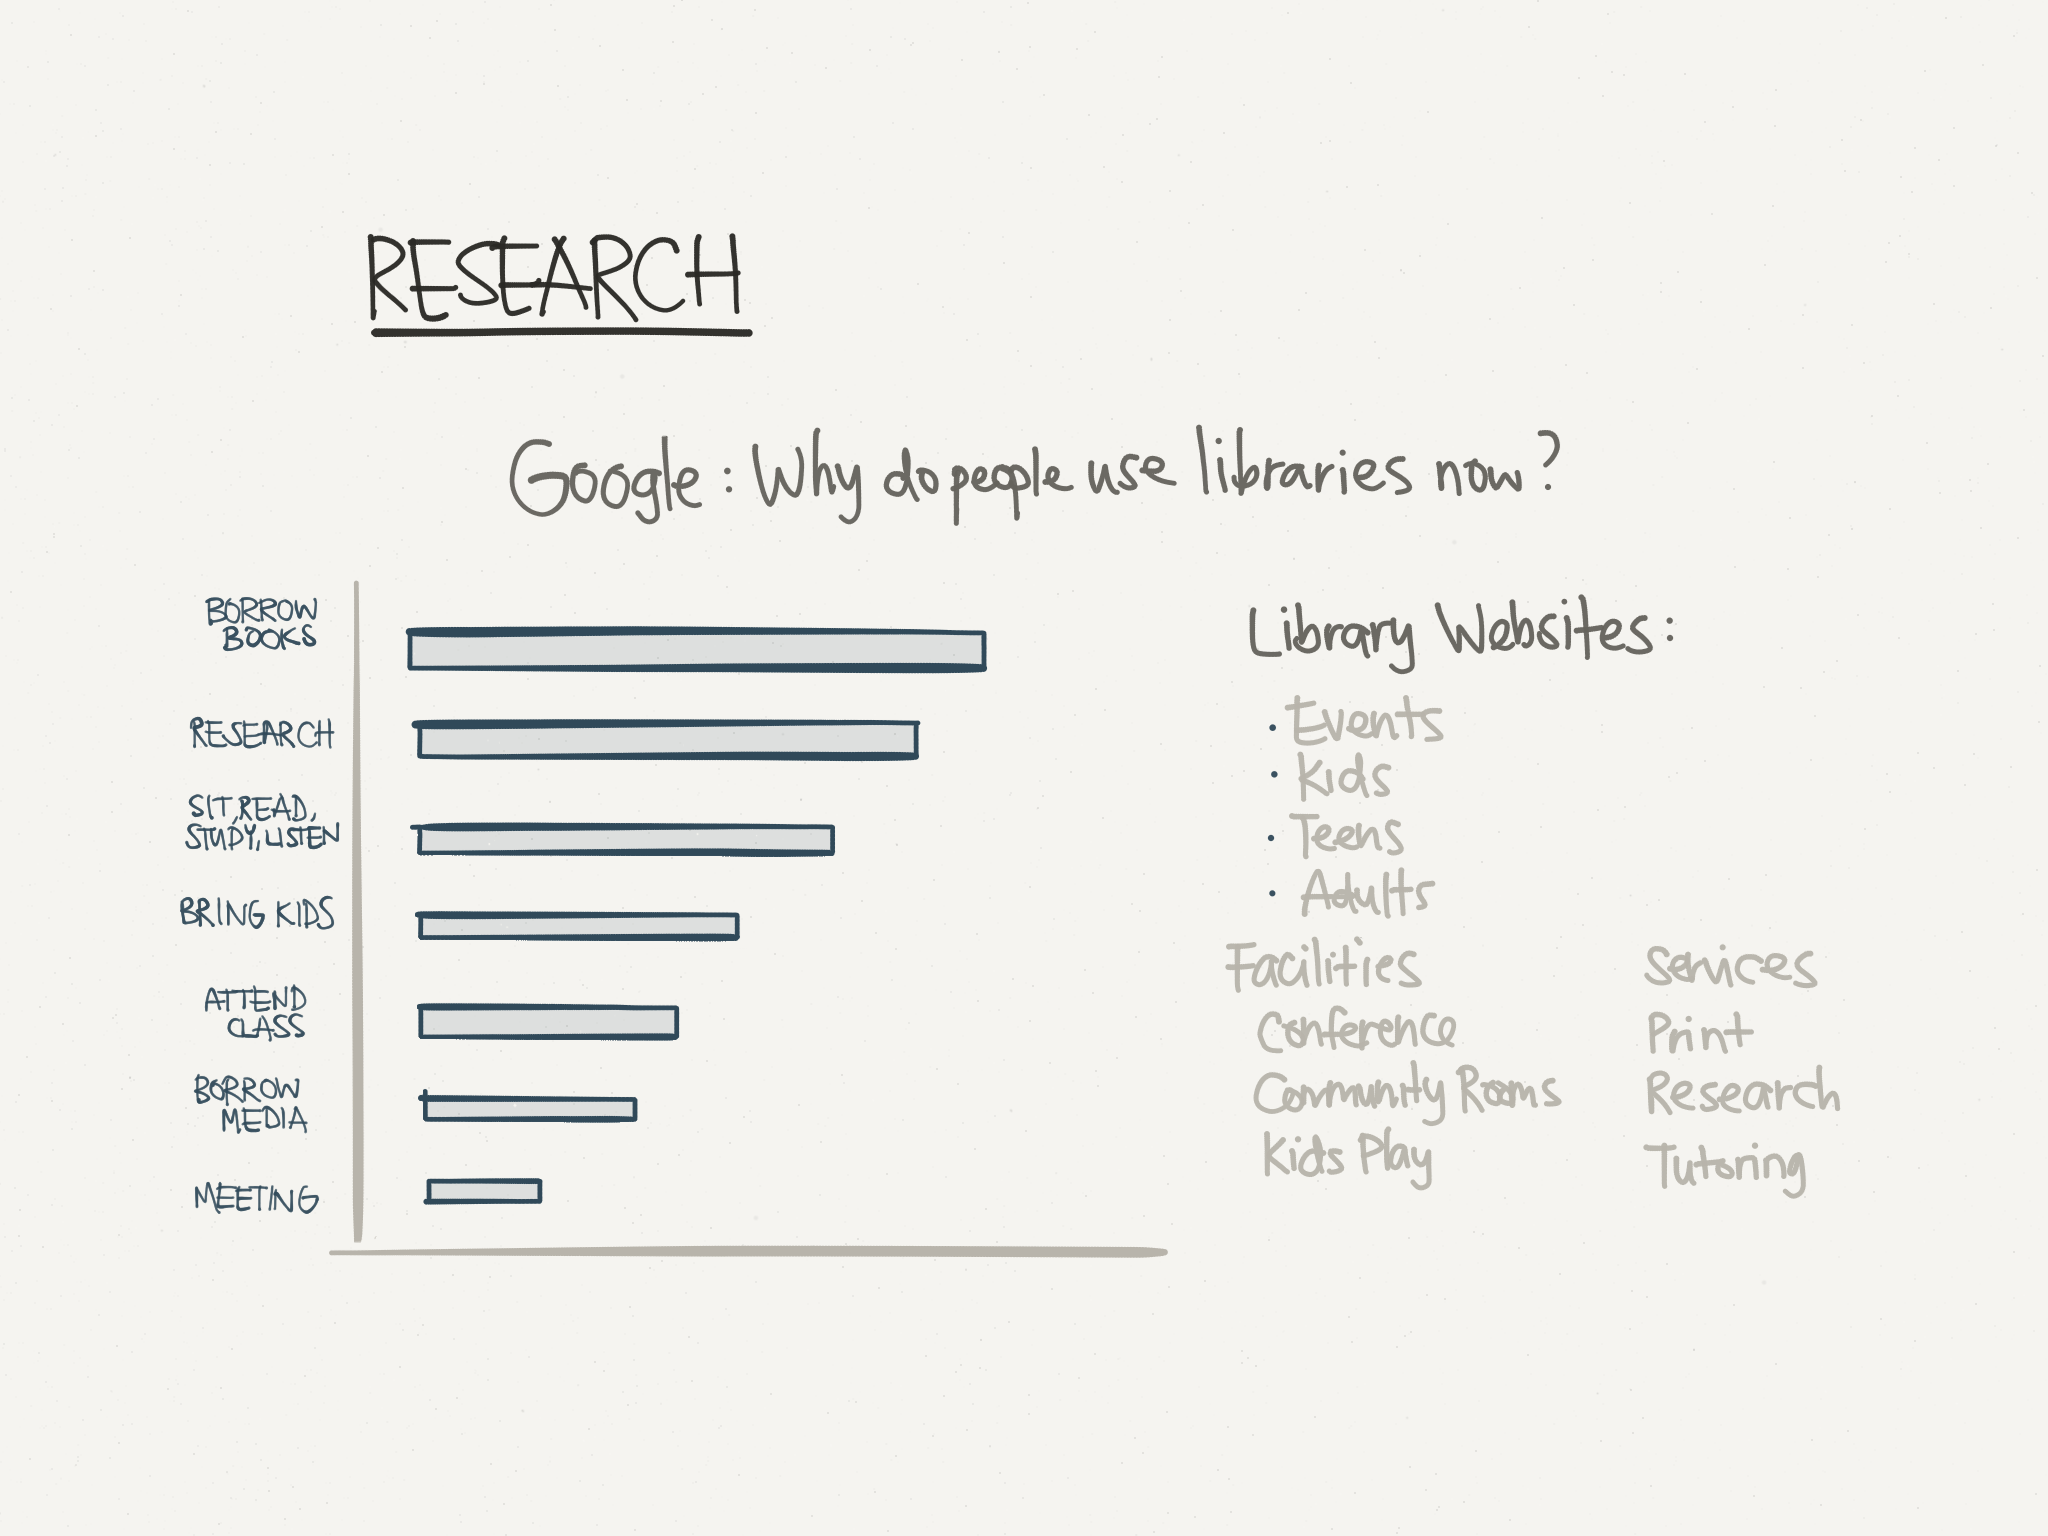 RESEARCH
Google: Why do people use libraries now?
BORROW
BOOKS
RESEARCH
SIT, READ,
STUDY, LISTEN
BRING KIDS
ATTEND
CLASS
BORROW
MEDIA
MEETING
Library Websites:
• Events
• Kids
• Teens
• Adults
Facilities
Conference
Community Rooms
Kids Play
Services
Print
Research
Tutoring